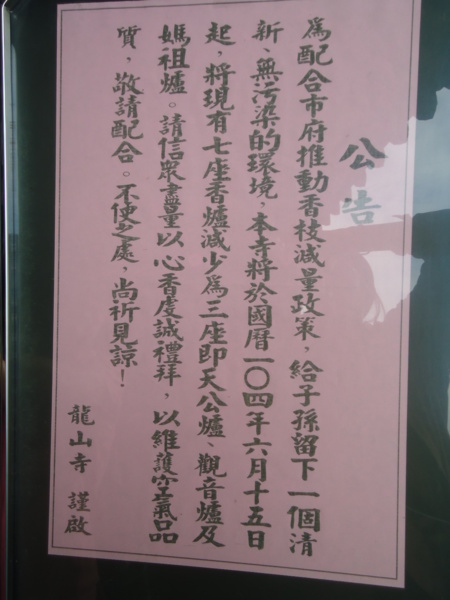 公告
為配合市府推動香枝減量政策，給子孫留下一個清
新、無污染的環境，本寺將於國曆一〇四年六月十五日
起，將現有七座香爐減少為三座即天公爐、觀音爐及
媽祖爐。請信眾盡量以心香虔誠禮拜，以維護空氣品
質，敬請配合。不便之處，尚祈見諒！
龍山寺 謹啟